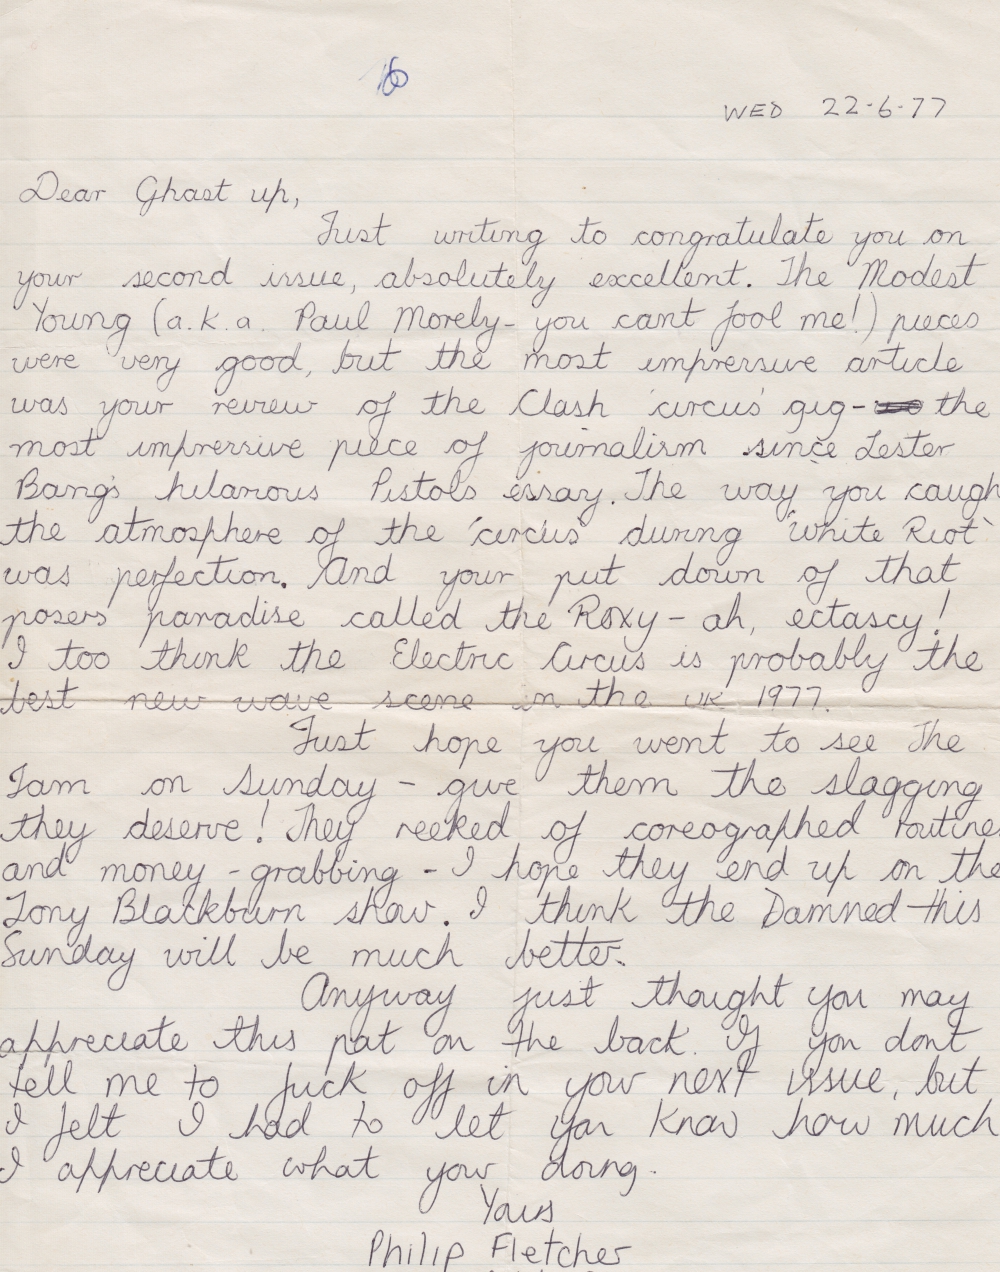 16
WED 22-6-77
Dear Ghast up,
Just writing to congratulate you on
your second issue, absolutely excellent. The Modest
Young (a.k.a. Paul Morely- you cant fool me!) pieces
were very good, but the most impressive article
was your review of the Clash 'circus' gig- the
most impressive piece of journalism since Lester
Bang's hilarious Pistols essay. The way you caugh
the atmosphere of the 'circus' during 'White Riot'
was perfection. And your put down of that
posers paradise called the Roxy - ah, ectascy!
I too think the Electric Circus is probably the
best new wave scene in the UK 1977.
Just hope you went to see The
Jam on Sunday - give them the slagging
they deserve! They reeked of coreographed routines
and money-grabbing - I hope they end up on the
Tony Blackburn show. I think the Damned this
Sunday will be much better.
Anyway just thought you may
appreciate this pat on the back. If you dont
tell me to fuck off in your next issue, but
I felt I had to let you know how much
I appreciate what your doing.
Yours
Philip Fletcher